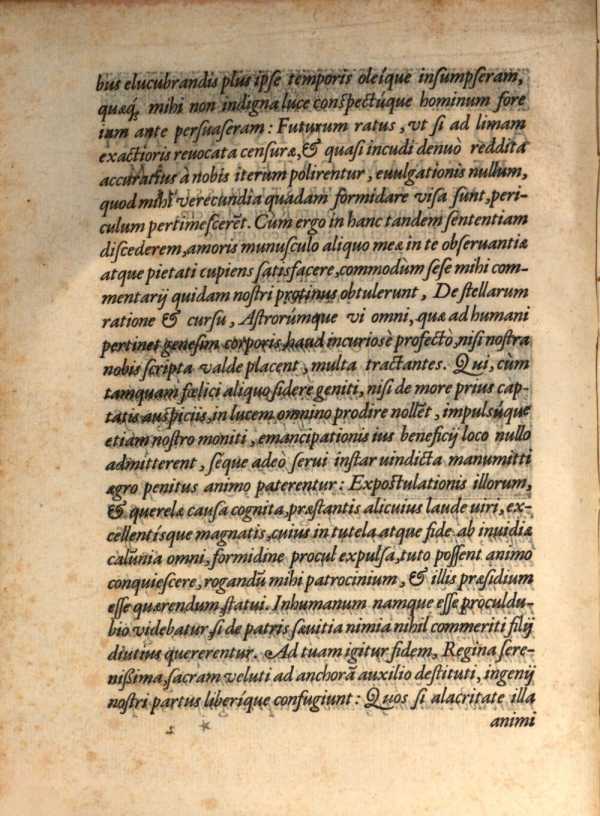 bus elucubrandis plus ipse temporis oleíque insumpseram,
quæq; mihi non indigna luce conspectúque hominum fore
iam ante persuaseram: Futurum ratus, vt si ad limam
exactioris reuocata censuræ, & quasi incudi denuo reddita
accuratius à nobis iterum polirentur, euulgationis nullum,
quod mihi verecundia quadam formidare visa sunt, peri-
culum pertimescerẽt. Cùm ergo in hanc tandem sententiam
discederem, amoris munusculo aliquo meæ in te obseruantiæ
atque pietati cupiens satisfacere, commodùm sese mihi com-
mentarij quidam nostri protinus obtulerunt, De stellarum
ratione & cursu, Astrorúmque vi omni, quæ ad humani
pertinet genesim corporis, haud incuriosè profectò, nisi nostra
nobis scripta valde placent, multa tractantes. Qui, cùm
tamquam fœlici aliquo sidere geniti, nisi de more prius cap-
tatis auspiciis, in lucem omnino prodire nollẽt, impulsúque
etiam nostro moniti, emancipationis ius beneficij loco nullo
admitterent, séque adeò serui instar uindicta manumitti
ægro penitus animo paterentur: Expostulationis illorum,
& querelæ causa cognita, præstantis alicuius laude uiri, ex-
cellentísque magnatis, cuius in tutela atque fide ab inuidiæ
calũnia omni, formidine procul expulsa, tuto possent animo
conquiescere, rogandũ mihi patrocinium, & illis præsidium
esse quærendum statui. Inhumanum namque esse proculdu-
bio videbatur si de patris sæuitia nimia nihil commeriti filij
diutius quererentur. Ad tuam igitur fidem, Regina sere-
nissima, sacram veluti ad anchorã auxilio destituti, ingenij
nostri partus liberíque confugiunt: Quos si alacritate illa
animi